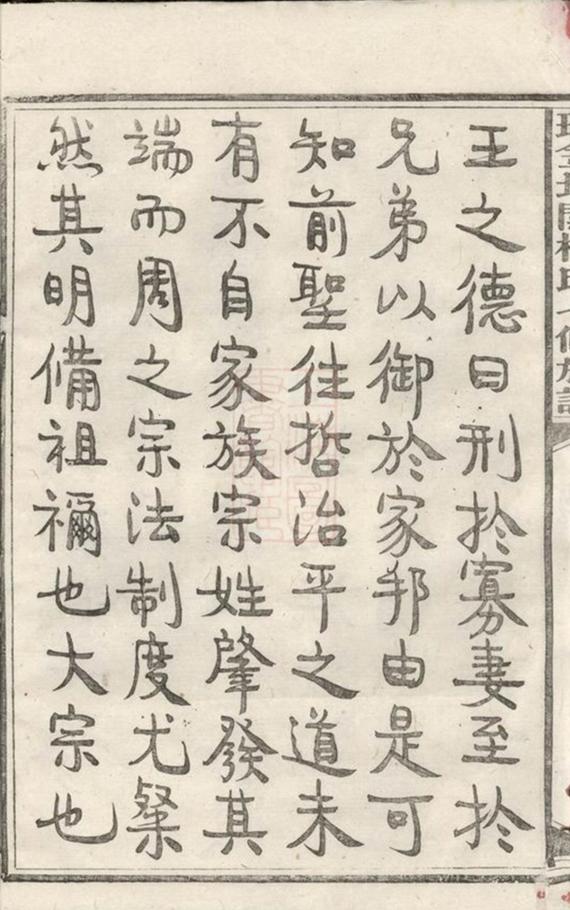 王之德曰刑於寡妻至於
兄弟以御於家邦由是可
知前聖往哲治平之道未
有不自家族宗姓肇發其
端而周之宗法制度尤粲
然其明備祖禰也大宗也